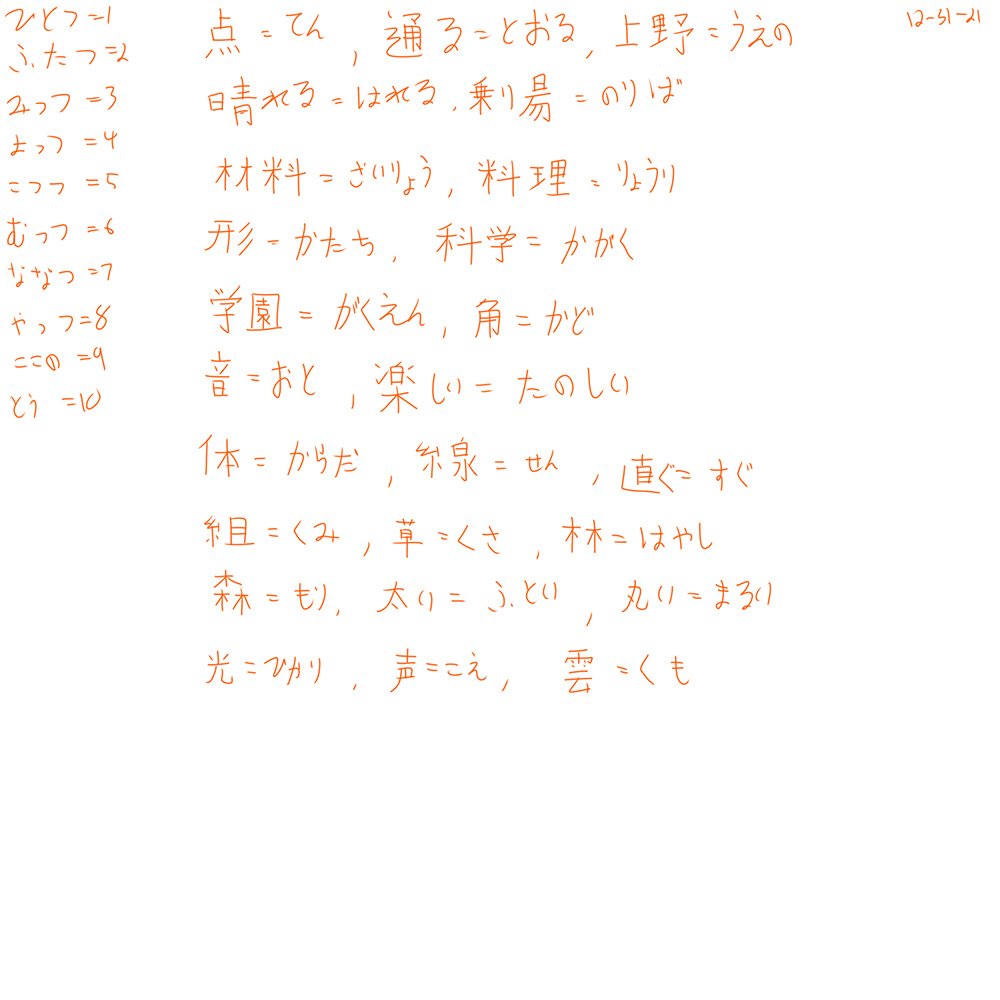 ひとつ=1
ふたつ=2
みっつ=3
よっつ=4
こつつ=5
むっつ=6
ななつ=7
やっつ=8
ここの=9
とう=10
点=てん, 通る=とおる, 上野=うえの
晴れる=はれる, 乗り場=のりば
材料=ざいりょう, 料理=りょうり
形=かたち, 科学=かがく
学園=がくえん, 角=かど
音=おと, 楽しい=たのしい
体=からだ, 線=せん, 直ぐ=すぐ
組=くみ, 草=くさ, 林=はやし
森=もり, 太い=ふとい, 丸い=まるい
光=ひかり, 声=こえ, 雲=くも
12-31-21